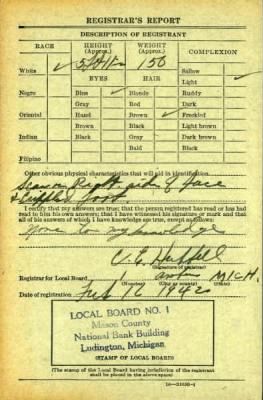 REGISTRAR'S REPORT
DESCRIPTION OF REGISTRANT
RACE HEIGHT (Approx.) WEIGHT (Approx.) COMPLEXION
White ✓ 150 Sallow
EYES HAIR Light ✓
Negro Blue ✓ Blonde Ruddy
Gray Red Dark
Oriental Hazel Brown ✓ Freckled
Brown Black Light brown
Indian Black Gray Dark brown
Bald Black
Filipino
Other obvious physical characteristics that will aid in identification
Scar on Right side of face
& Crippled foot.
I certify that my answers are true; that the person registered has read or has had
read to him his own answers; that I have witnessed his signature or mark and that
all of his answers of which I have knowledge are true, except as follows:
None to my knowledge
(Signature of registrar)
Registrar for Local Board MICH.
Date of registration Feb 16 1942
LOCAL BOARD NO. 1
Mason County
National Bank Building
Ludington, Michigan
(STAMP OF LOCAL BOARD)
(The stamp of the Local Board having jurisdiction of the registrant
shall be placed in the above space)